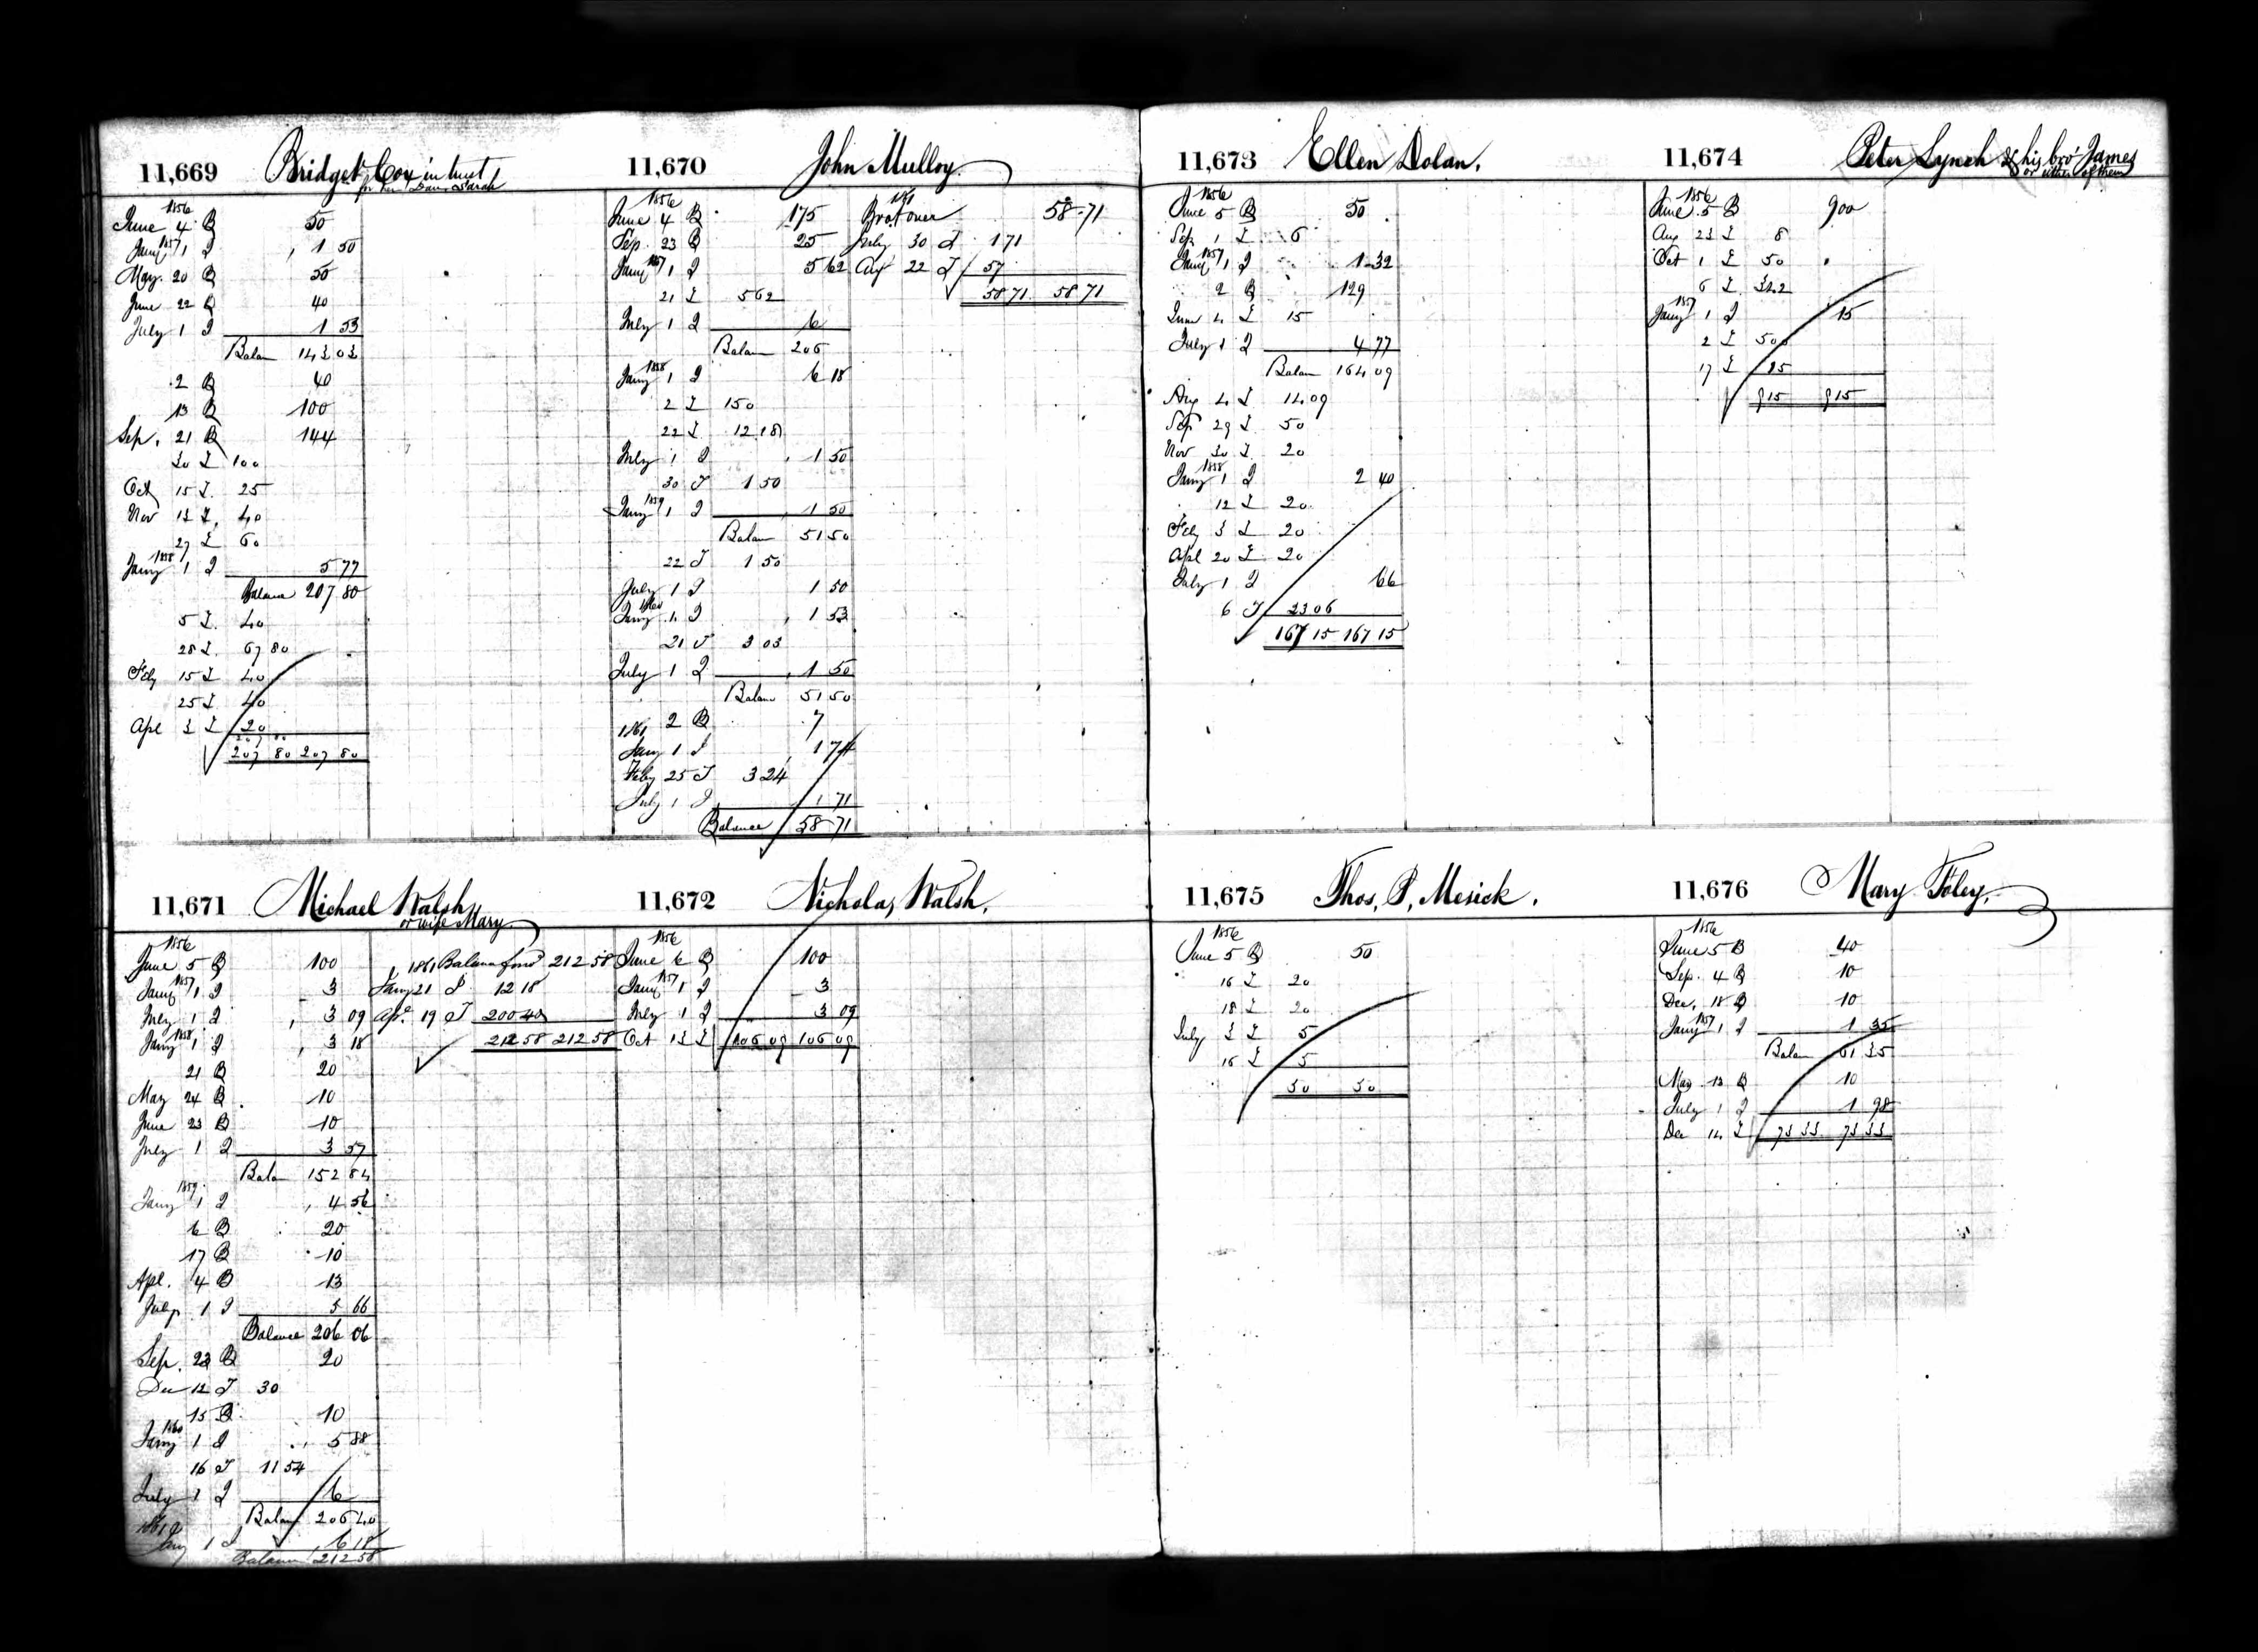 11,669 Bridget Cox in trust
for her Daur Sarah
1856
June 4 B 50
1857
Jany 1 I 1 50
May 20 B 50
June 22 B 40
July 1 I 1 53
Balan 143 03
2 B 40
13 B 100
Sep. 21 B 144
30 T 100
Oct 15 T 25
Nov 13 T 40
27 T 60
1858
Jany 1 I 5 77
Balance 207 80
5 T 40
28 T 67 80
Feby 15 T 40
25 T 40
Apl 3 T 20
207 80 207 80
11,670 John Mulloy.
1856
June 4 B 175
Sep. 23 B 25
1857
Jany 1 I 5 62
21 T 5 62
July 1 I 6
Balan 206
1858
Jany 1 I 6 18
2 T 150
22 T 12 18
July 1 I 1 50
30 T 1 50
1859
Jany 1 I 1 50
Balan 51 50
22 T 1 50
July 1 I 1 50
1860
Jany 1 I 1 53
21 T 3 03
July 1 I 1 50
Balan 51 50
2 B 7
1861
Jany 1 I 1 74
Feby 25 T 3 24
July 1 I 1 71
Balance 58 71
1861
Bro't over 58 71
July 30 T 1 71
Aug 22 T 57
58 71 58 71
11,671 Michael Walsh
or wife Mary
1856
June 5 B 100
1857
Jany 1 I 3
July 1 I 3 09
1858
Jany 1 I 3 18
21 B 20
May 24 B 10
June 23 B 10
July 1 I 3 57
Balan 152 84
1859
Jany 1 I 4 56
6 B 20
17 B 10
Apl. 4 B 13
July 1 I 5 66
Balance 206 06
Sep. 23 B 20
Dec 12 T 30
15 B 10
1860
Jany 1 I 5 88
16 T 11 54
July 1 I 6
Balan 206 40
1861
Jany 1 I 6 18
Balance 212 58
1861 Balance 212 58
Jany 21 T 12 18
Apl 19 T 200 40
212 58 212 58
11,672 Nicholas Walsh.
1856
June 6 B 100
1857
Jany 1 I 3
July 1 I 3 09
Oct 13 T 106 09 106 09
11,673 Ellen Dolan.
1856
June 5 B 50
Sep 1 T 6
1857
Jany 1 I 1 32
2 B 129
June 4 T 15
July 1 I 4 77
Balan 164 09
Aug 4 T 14 09
Sep 29 T 50
Nov 30 T 20
1858
Jany 1 I 2 40
12 T 20
Feby 3 T 20
Apl 20 T 20
July 1 I 66
6 T 23 06
167 15 167 15
11,674 Peter Lynch & his bro' James
or either of them
1856
June 5 B 900
Aug 23 T 8
Oct 1 T 50
6 T 342
1857
Jany 1 I 15
2 T 500
17 T 15
915 915
11,675 Thos. P. Mesick.
1856
June 5 B 50
16 T 20
18 T 20
July 3 T 5
16 T 5
50 50
11,676 Mary Foley.
1856
June 5 B 40
Sep. 4 B 10
Dec. 18 B 10
1857
Jany 1 I 1 35
Balan 61 35
May 13 B 10
July 1 I 1 98
Dec 14 T 73 33 73 33